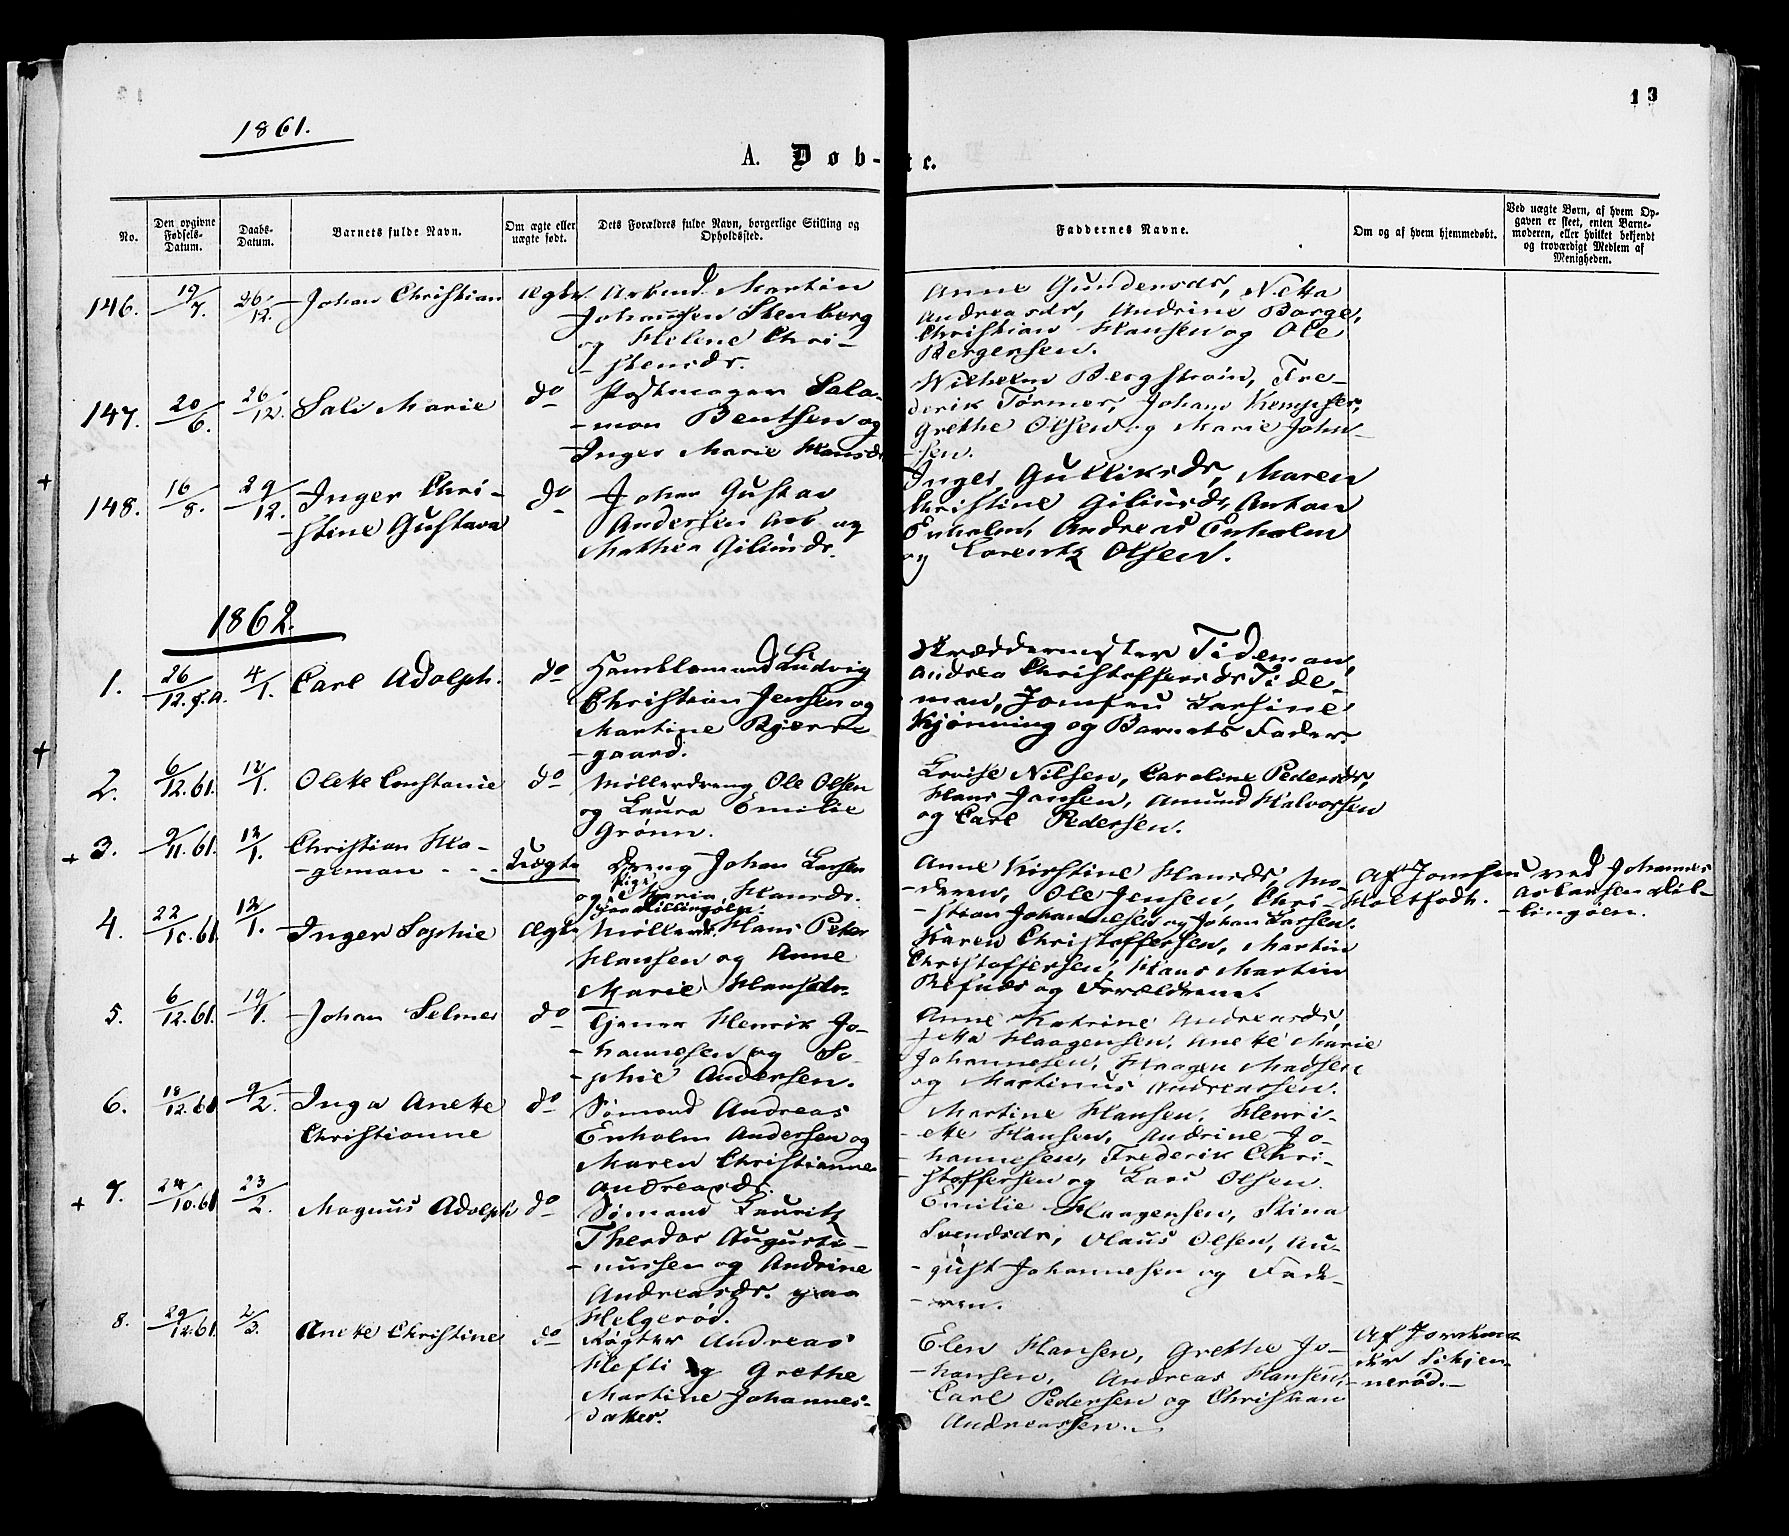 13
1861.
A. Døbte.
No.
Den opgivne Fødsels-Datum.
Daabs-Datum.
Barnets fulde Navn.
Om ægte eller uægte født.
Dets Forældres fulde Navn, borgerlige Stilling og Opholdssted.
Faddernes Navne.
Om og af hvem hjemmedøbt.
Ved uægte Børn, af hvem Op-
gaven er skeet, enten Barne-
moderen, eller hvilket bekjendt
og troværdigt Medlem af
Menigheden.
146. 19/7. 26/12. Johan Christian ægte Arbmd. Martin
Johannsen Stenberg
og Helene Chri-
stensdr.
Anne Gundersdr, Netta
Andreasdr, Andrine Borge,
Christian Hansen og Ole
Bergersen.
147. 20/6. 26/12. Sali Marie do Salo-
mon Bentsen og
Inger Marie Hansdr
Wilhelm Bergstrøm, Fre-
derik Tørmer, Johan Kempfer,
Grethe Olsen og Marie John-
sen.
+
148. 16/8. 29/12. Inger Chri-
stine Gustava
do
Johan Gustav
Andersen Arb. og
Mathea Giliusdr.
Inger Gulliksdr, Maren
Christine Giliusdr, Anton
Enholm, Andreas Enholm
og Lorentz Olsen.
1862.
1. 26/12. f.A. 4/1. Carl Adolph. do Ludvig
Christian Jensen og
Martine Bjerre-
gaard.
Skræddermester Tideman,
Andrea Christoffersdr Tide-
man, Jomfru Larsine
Kjønning og Barnets Fader.
+
2. 6/12.61. 12/1. Olette Constanie do Møllerdreng Ole Olsen
og Laura Emilie
Grønn.
Lovise Nilsen, Caroline Pedersdr,
Hans Jansen, Amund Halvorsen
og Carl Pedersen.
+ 3. 9/11.61. 12/1. Christian Ha-
geman
Uægte
Dreng Johan Larsen
og Pige Maria Hansdr.
fra Dillingøen.
Anne Kirstine Hansdr, Mo-
deren, Ole Jensen, Chri-
stian Johannesen og Johan Larsen.
Af Jomfru
Holtfodt.
ved Johannes
Aslaksen Dil-
lingøen.
4. 22/10.61 12/1. Inger Sophie ægte Møller Hans Peter
Hansen og Anne
Marie Hansdtr.
Karen Christoffersen, Martin
Christoffersen, Hans Martin
Refnes og Forældrene.
5. 6/12.61. 19/1. Johan Selmer do Tjener Henrik Jo-
hannesen og So-
phie Andersen.
Anne Katrine Andreasdr,
Jetta Haagensen, Anette Marie
Johannesen, Haagen Madsen
og Martinus Andreassen.
6. 18/12.61 9/2. Inga Anette
Christianne
do
Sømand Andreas
Enholm Andersen og
Maren Christianne
Andreasdr.
Martine Hansen, Henri-
ette Hansen, Andrine Jo-
hannesen, Frederik Chri-
stoffersen og Lars Olsen.
+ 7. 24/10.61 23/2. Magnus Adolph do Sømand Lauritz
Theodor Augusti-
nussen og Andrine
Andreasdr. paa
Helgerød.
Emilie Haagensen, Stina
Svendsdr, Olaus Olsen, Au-
gust Johannesen og Fade-
ren.
8. 29/12.61. 2/3. Anette Christine do Røgter Andreas
Hefti og Grethe
Martine Johannes-
datter.
Elen Hansen, Grethe Jo-
hansen, Andreas Hansen,
Carl Pedersen og Christian
Andreassen.
Af Jordmo-
der Schjen-
nerød.